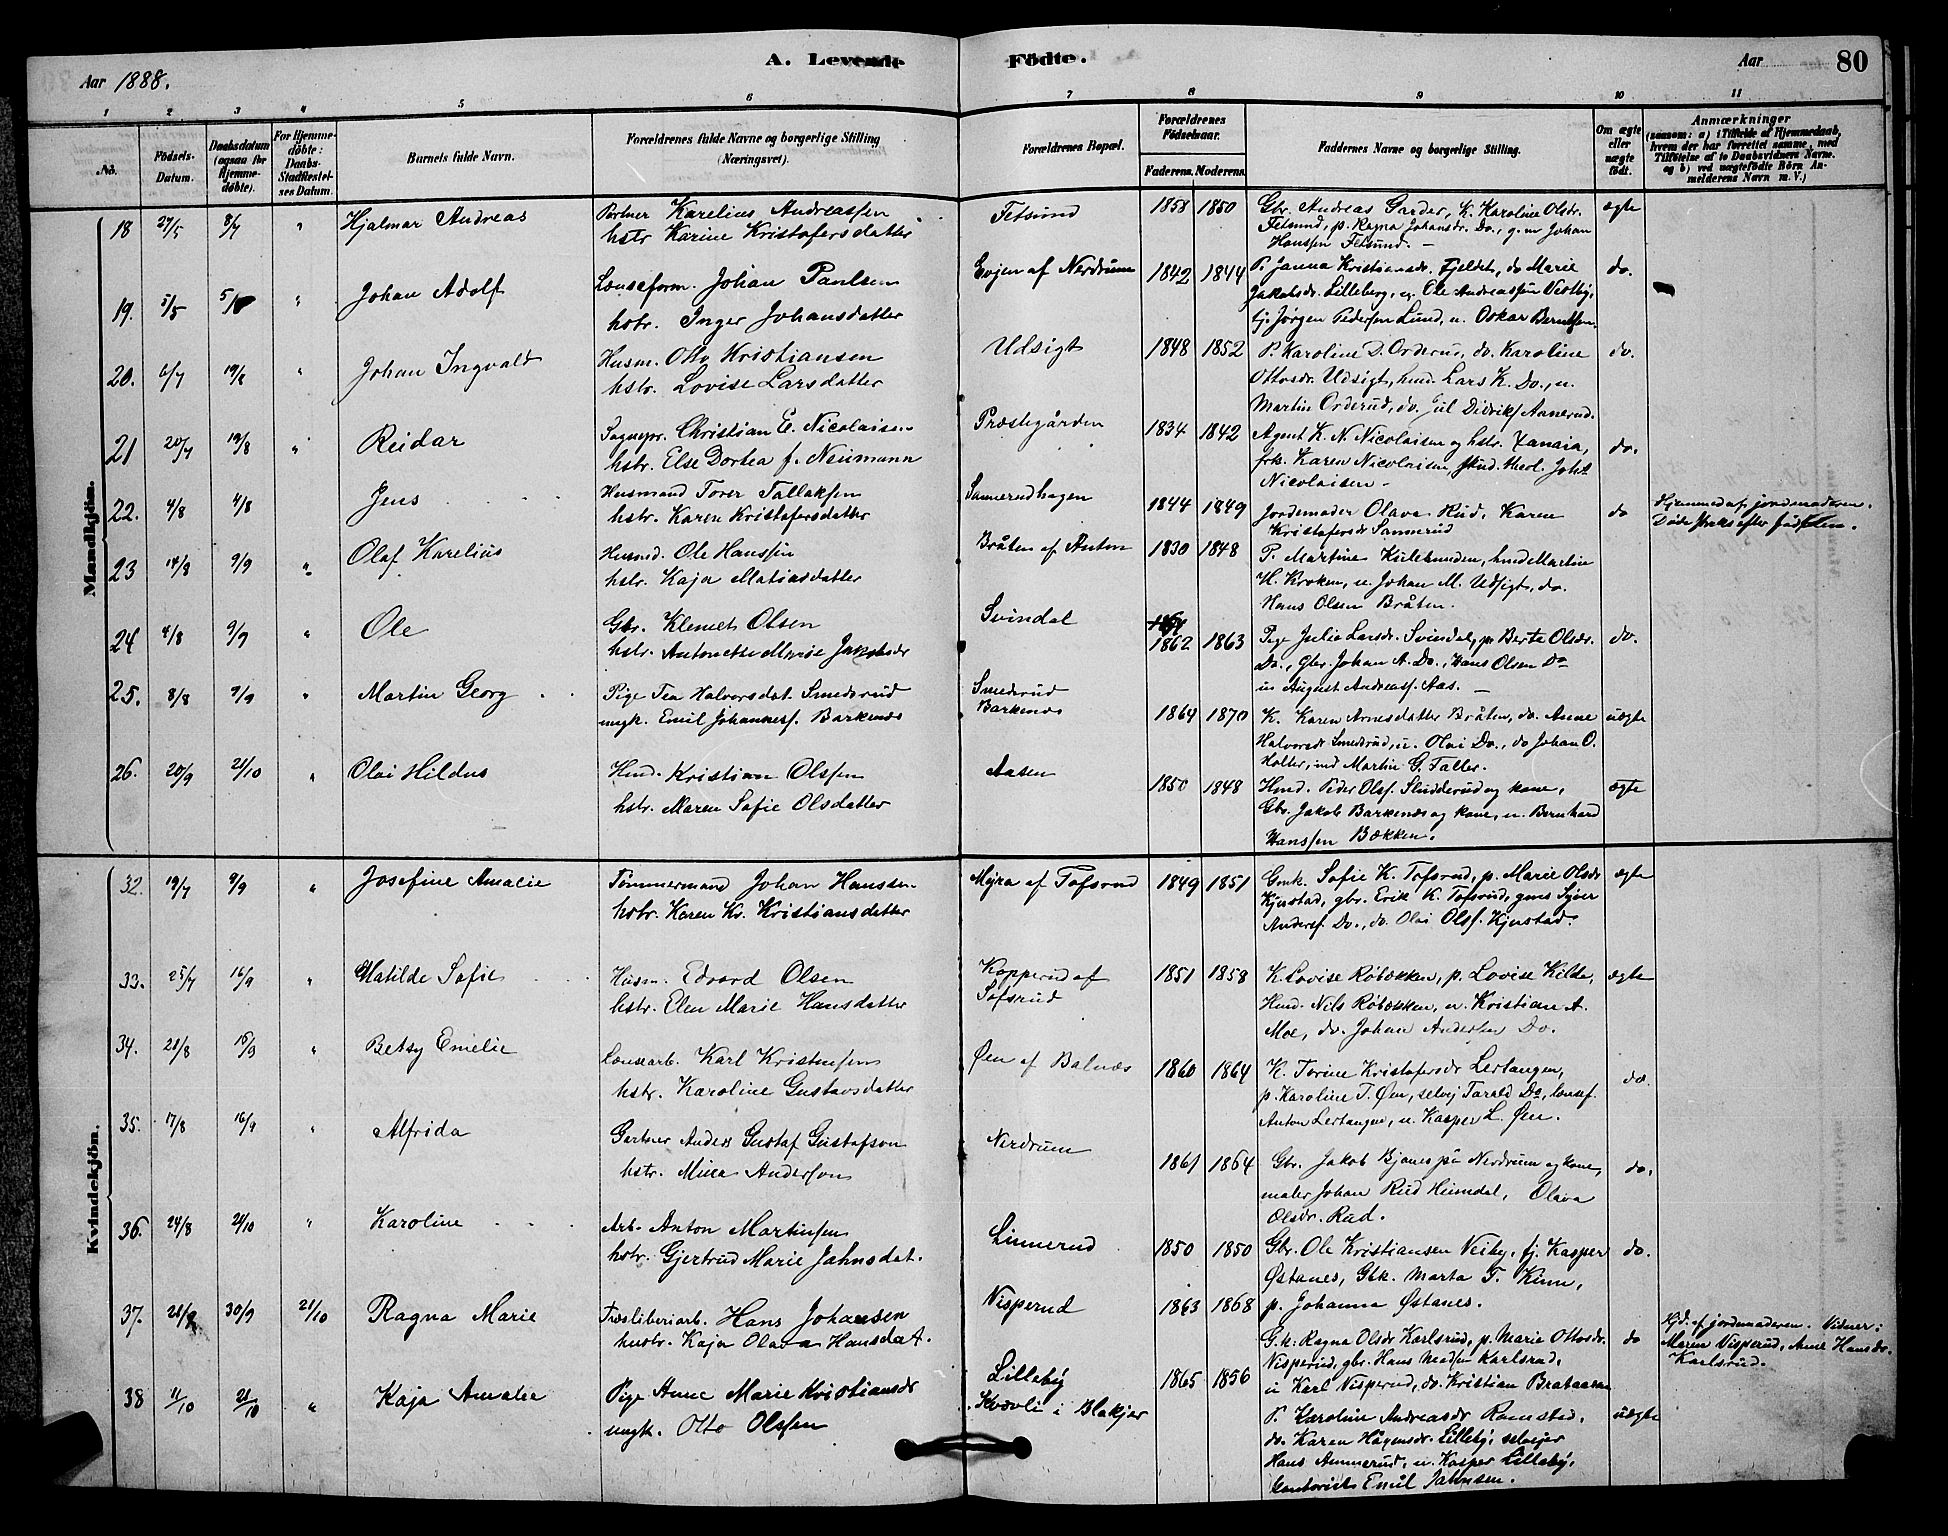 Aar 1888.
A. Levende
Födte.
Aar
80
1 2 3 4 5 6 7 8 9 10 11
No.
Födsels-Datum.
Daabsdatum (ogsaa for Hjemmedöbte).
For Hjemmedöbte: Daabs-Stadfæstelses Datum.
Barnets fulde Navn.
Forældrenes fulde Navne og borgerlige Stilling (Næringsvei).
Forældrenes Bopæl.
Forældrenes Födselsaar.
Faderens. Moderens.
Faddernes Navne og borgerlige Stilling.
Om ægte eller uægte födt.
Anmærkninger
(saasom: a) i Tilfælde af Hjemmedaab, hvem der har forrettet samme, med Tilföielse af to Daabsvidners Navne. og b) ved uægtefödte Börn Anmelderens Navn m. V.)
Mandkjön.
18 27/5 8/7 " Hjalmar Andreas
Karelius Andreassen
hstr Karine Kristofersdatter
Fetsund
1858 1850
Gbr. Andreas Garder, K. Karoline Olsdr.
Fetsund, p. Ragna Johansdr. Do., g.m Johan
Hanssen Fetsund. —
ægte
19. 5/5 " Johan Adolf
Lænseform. Johan Paulsen
hstr. Inger Johansdatter
Evjen af Nerdrum
1842 1844
P. Janna Kristiansdr. Fjeldet, do Marie
Jakobsdr. Lilleberg, u. Ole Andreassen Vestby,
tj. Jørgen Pedersen Lund, u. Oskar Berntsen.
do.
20. 6/7 19/8 " Johan Ingvald
Husm. Otto Kristiansen
hstr. Lovise Larsdatter
Udsigt
1848 1852
P. Karoline D. Orderud, do. Karoline
Ottosdr. Udsigt, hmd. Lars K. Do., u.
Martin Orderud, do. Jul Didriks Aanerud.
do.
21 20/7 19/8 " Reidar
Sognepr. Christian E. Nicolaisen
hstr. Else Dortea f. Neumann
Præstegården
1834 1842
Agent K. N Nicolaisen og hstr.
frk. Karen Nicolaisen stud. theol. Johs
Nicolaisen —
do.
22. 4/8 4/8 Jens
Husmand Torer Tallaksen
hstr. Karen Kristofersdatter
Sannerudhagen
1844 1849
Jordemoder Olava Rud, Karen
Kristofersdr Sannerud
do
Hjemmed. af jordmoderen.
Døde straks efter fødselen.
23 14/8 9/9 " Olaf Karelius
Husmd. Ole Hanssen
hstr. Kaja Matiasdatter
Bråten af Anton
1830 1848
P. Martine Kulesunden, hmd Martin
H. Kroken, u. Johan M. Udsigt, do.
Hans Olsen Bråten.
24 4/8 9/9 " Ole
Gbr. Klemet Olsen
hstr. Antonette Marie Jakobsdr
Svindal
1862 1863
Pige Julie Larsdr. Svindal, p. Berte Olsdr.
Do., gbr. Johan A. Do., Hans Olsen Do
u August Andreass. Aas. —
do.
25. 8/8 9/9 " Martin Georg
Pige Tea Halvorsdat. Smedsrud
ungk. Emil Johanness. Barkenæs
Smedsrud
Barkenæs
1864 1870
K. Karen Arnesdatter Bråten, do. Anne
Halvorsdr Smedsrud, u. Olai Do., do Johan O.
Holter, md Martin G. Taller.
uægte
26. 20/9 21/10 " Olai Hildus
Hmd. Kristian Olssen
hstr. Maren Sofie Olsdatter
Aasen
1850 1848
Hmd. Peder Ols. Sludderud og kone,
Gbr. Jakob Barkenæs og kone, u. Bernhard
Hanssen Bækken.
ægte
Kvindekjön.
32. 19/7 9/9 " Josefine Amalie
Tømmermand Johan Hanssen
hstr. Karen Kr. Kristiansdatter
Myra af Tofsrud
1849 1851
Gmk. Sofie K. Tofsrud, p. Marie Olsdr
Kjustad, gbr. Erik K. Tofsrud, gms Syver
Anders. Do., do. Olai Ols. Kjustad.
ægte
33. 25/7 16/9 " Matilde Sofie
Husm. Edvard Olsen
hstr. Elen Marie Hansdatter
Kopperud af
Tofsrud
1851 1858
K. Lovise Røbækken, p. Lovise Kilde,
Hmd. Nils Røbækken, u. Kristian A.
Moe, do. Johan Andersen Do.
ægte
34. 21/8 16/9 " Betsy Emelie
Lænsearb. Karl Kristensen
hstr. Karoline Gustavsdatter
Øen af Balnæs
1860 1864
K. Torine Kristofersdr Lertangen,
p. Karoline T. Øen, selvej Tarald Do., lensef.
Anton Lertangen, u. Kasper L. Øen.
do.
35. 17/8 16/9 " Alfrida
Gartner Anders Gustaf Gustafson
hstr. Mina Anderson
Nerdrum
1861 1864
Gbr. Jakob Bjanes på Nerdrum og kone,
maler Johan Rud Heimdal, Olava
Olsdr. Rud.
do.
36. 24/8 21/10 " Karoline
Arb. Anton Martinsen
hstr. Gjertrud Marie Jahnsdat.
Linnerud
1850 1850
Gbr. Ole Kristiansen Veiby, tj. Kasper
Østanes, Gbk. Marta T. Kinn,
p. Johanna Østanes.
do.
37. 30/9 21/10 Ragna Marie
Træsliberiarb. Hans Johansen
hustr. Kaja Olava Hansdat.
Nisperud
1863 1868
G.k. Ragna Olsdr Karlsrud, p. Marie Ottosdr.
Nisperud, gbr. Hans Madsen Karlsrud,
u Karl Nisperud, do. Kristian Brataasen
do
Hjd. af jordemoderen. Vidner:
Maren Nisperud, Anne Hansdr.
Karlsrud.
38 11/10 21/10 " Kaja Amalie
Pige Anne Marie Kristiansdr
ungk. Otto Olssen
Lilleby
Kvævli i Blakjer
1865 1856
P. Karoline Andreasdr Ramstad,
do. Karen Hågensdr. Lilleby, selvejer
Hans Ammerud, u. Kasper Lilleby,
Emil Jahnsen.
uægte